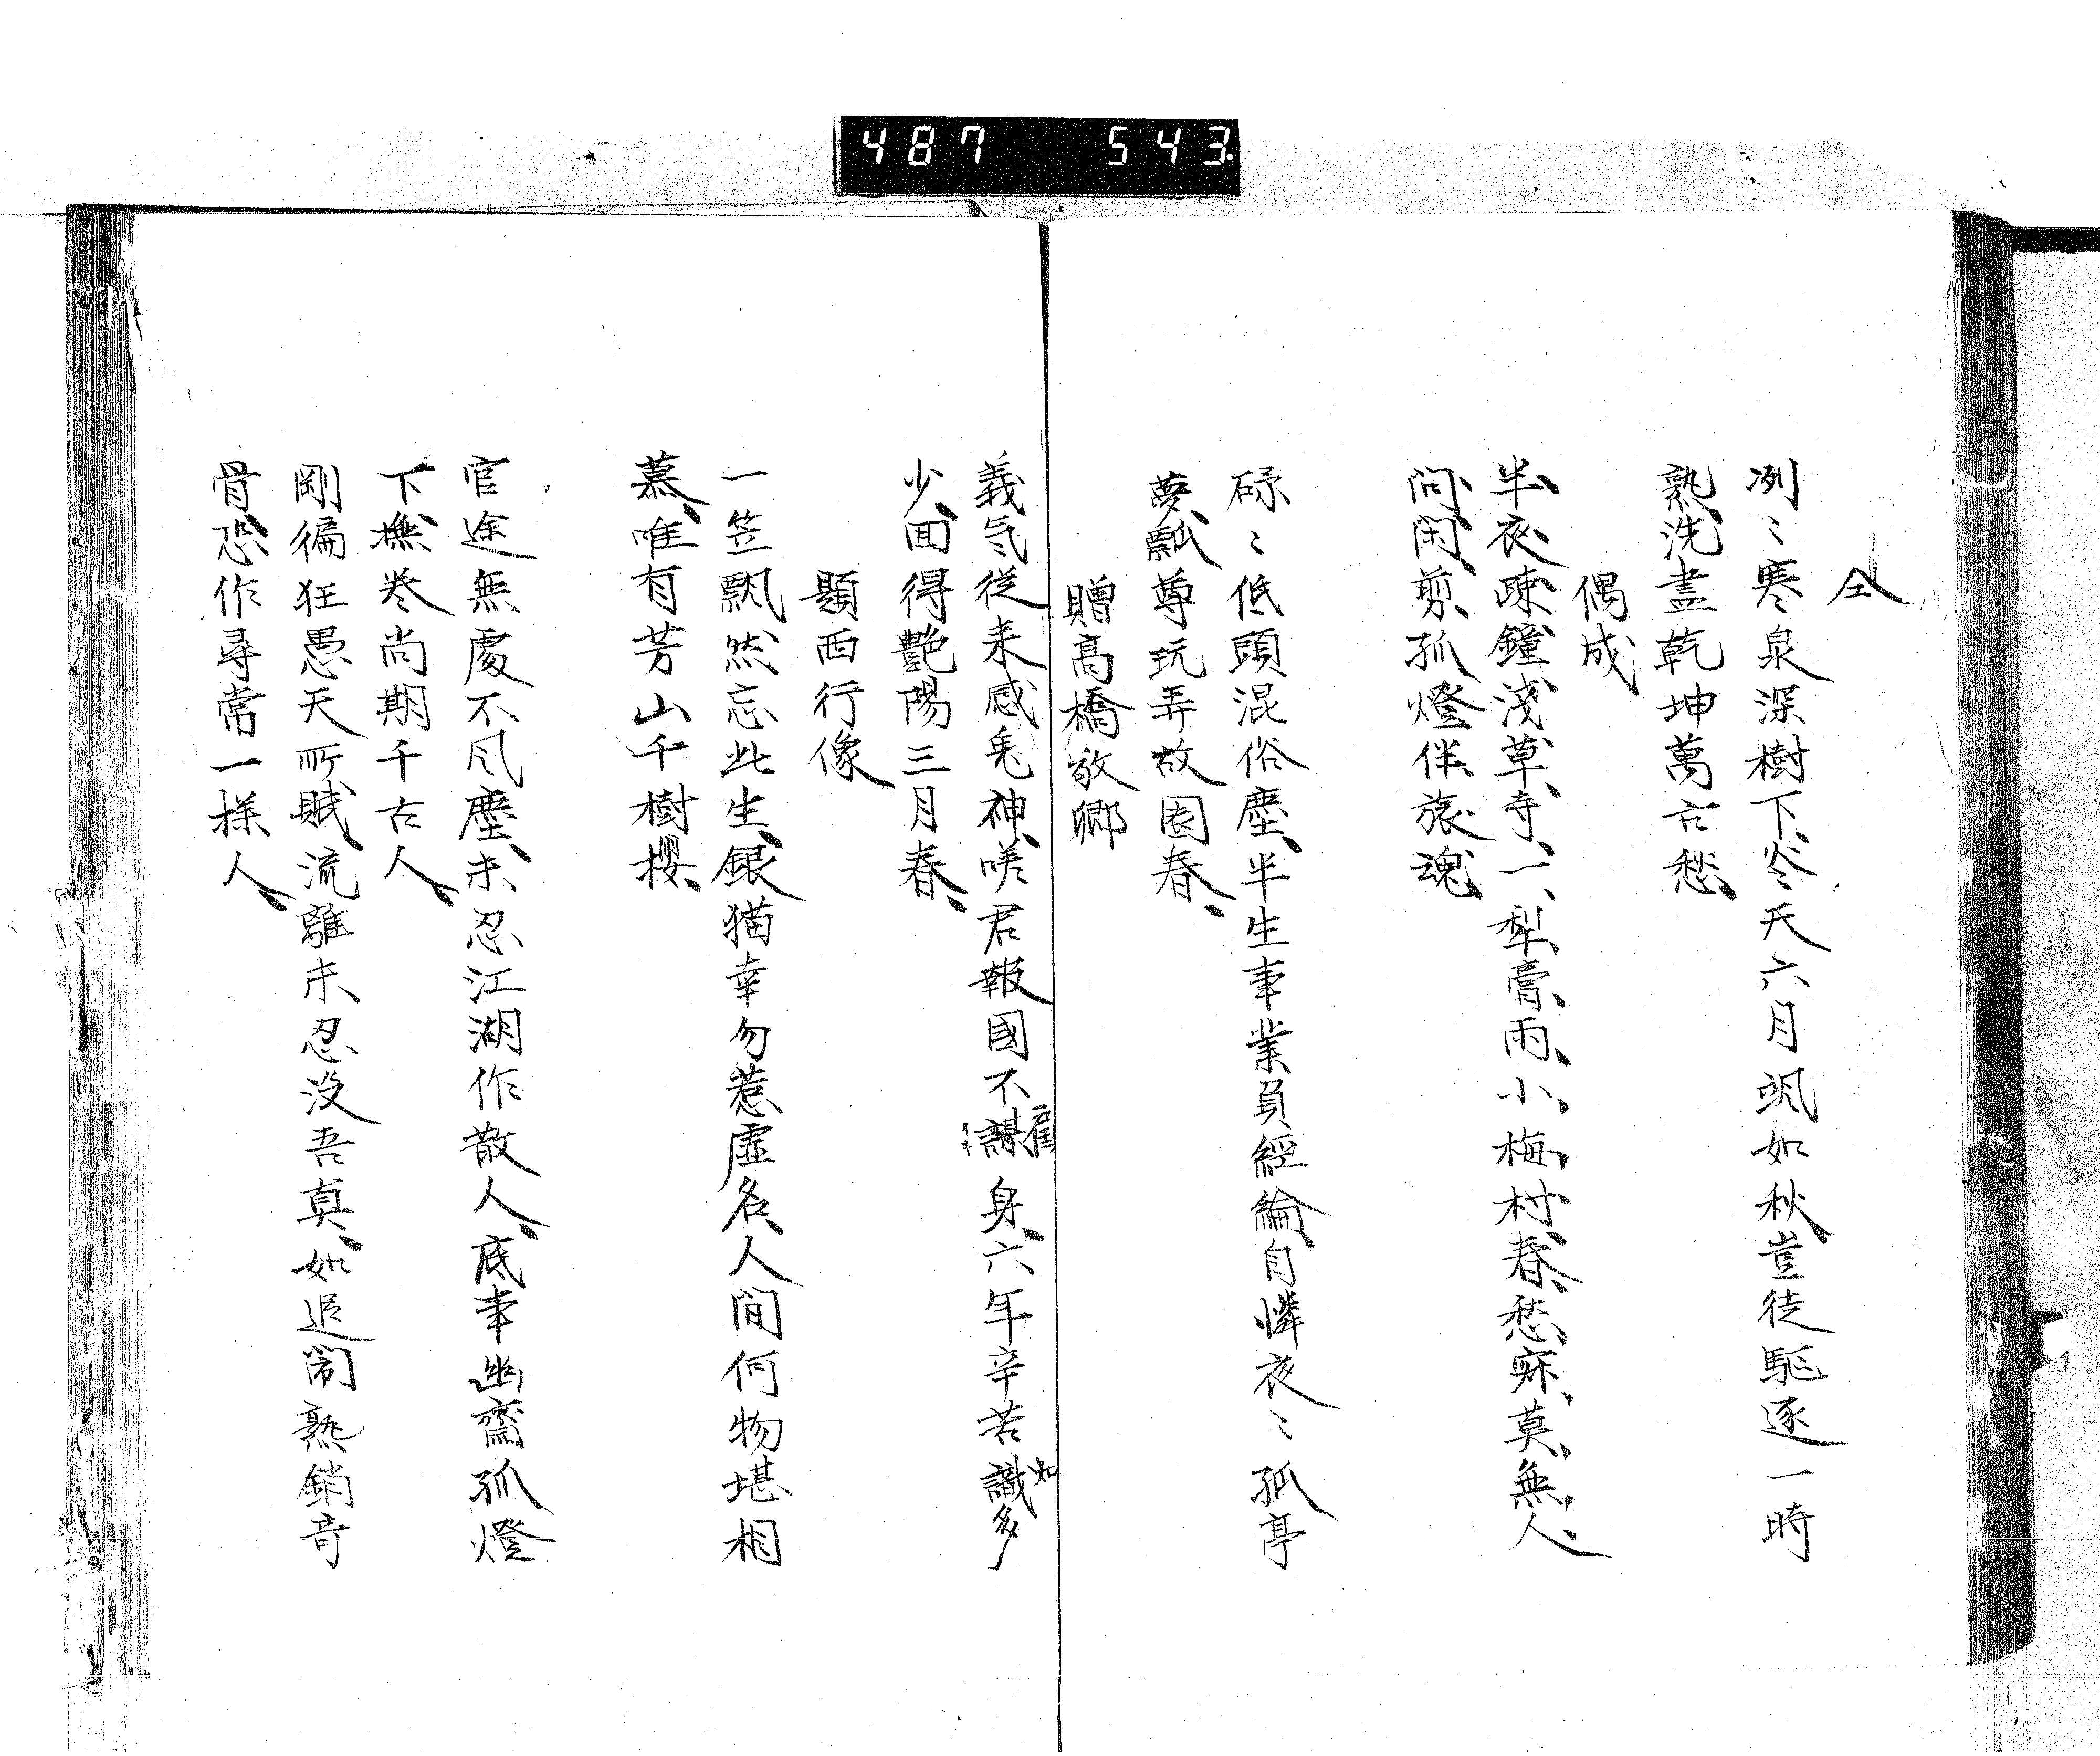 487 543
仝
冽〻寒泉深樹下、冷天六月颯如秋、豈徒駆逐一時
熱、洗盡乾坤萬古愁、
偶成
半、夜、疎、鐘、淺、草、寺、一、犁、膏、雨、小、梅、村、春、愁、寂、莫、無、人、
問、閑、剪、孤燈、伴、旅、魂、
碌〻低頭混俗塵、半生事業負經綸、自憐夜〻孤亭
夢、瓢尊玩弄故園春、
贈高橋敬郷
義気従来感鬼神、嗟君報國不謀身、六年辛苦識多
雇
知
少、回得艶陽三月春、
題西行像
一笠飄然忘此生、銀猫幸勿惹虚名、人間何物堪相
慕、唯有芳山千樹櫻、
官途無處不凡塵、未忍江湖作散人、底事幽齋孤燈
下、撫巻尚期千古人、
剛徧狂愚天所賦、流離未忍没吾真、如追閙熱銷奇
骨、恐作尋常一様人、